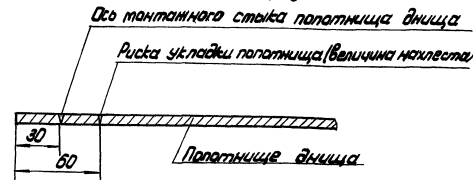 Ось монтажного стыка полотнища днища
Риска укладки полотнища (величина нахлеста
30
60
Полотнище днища